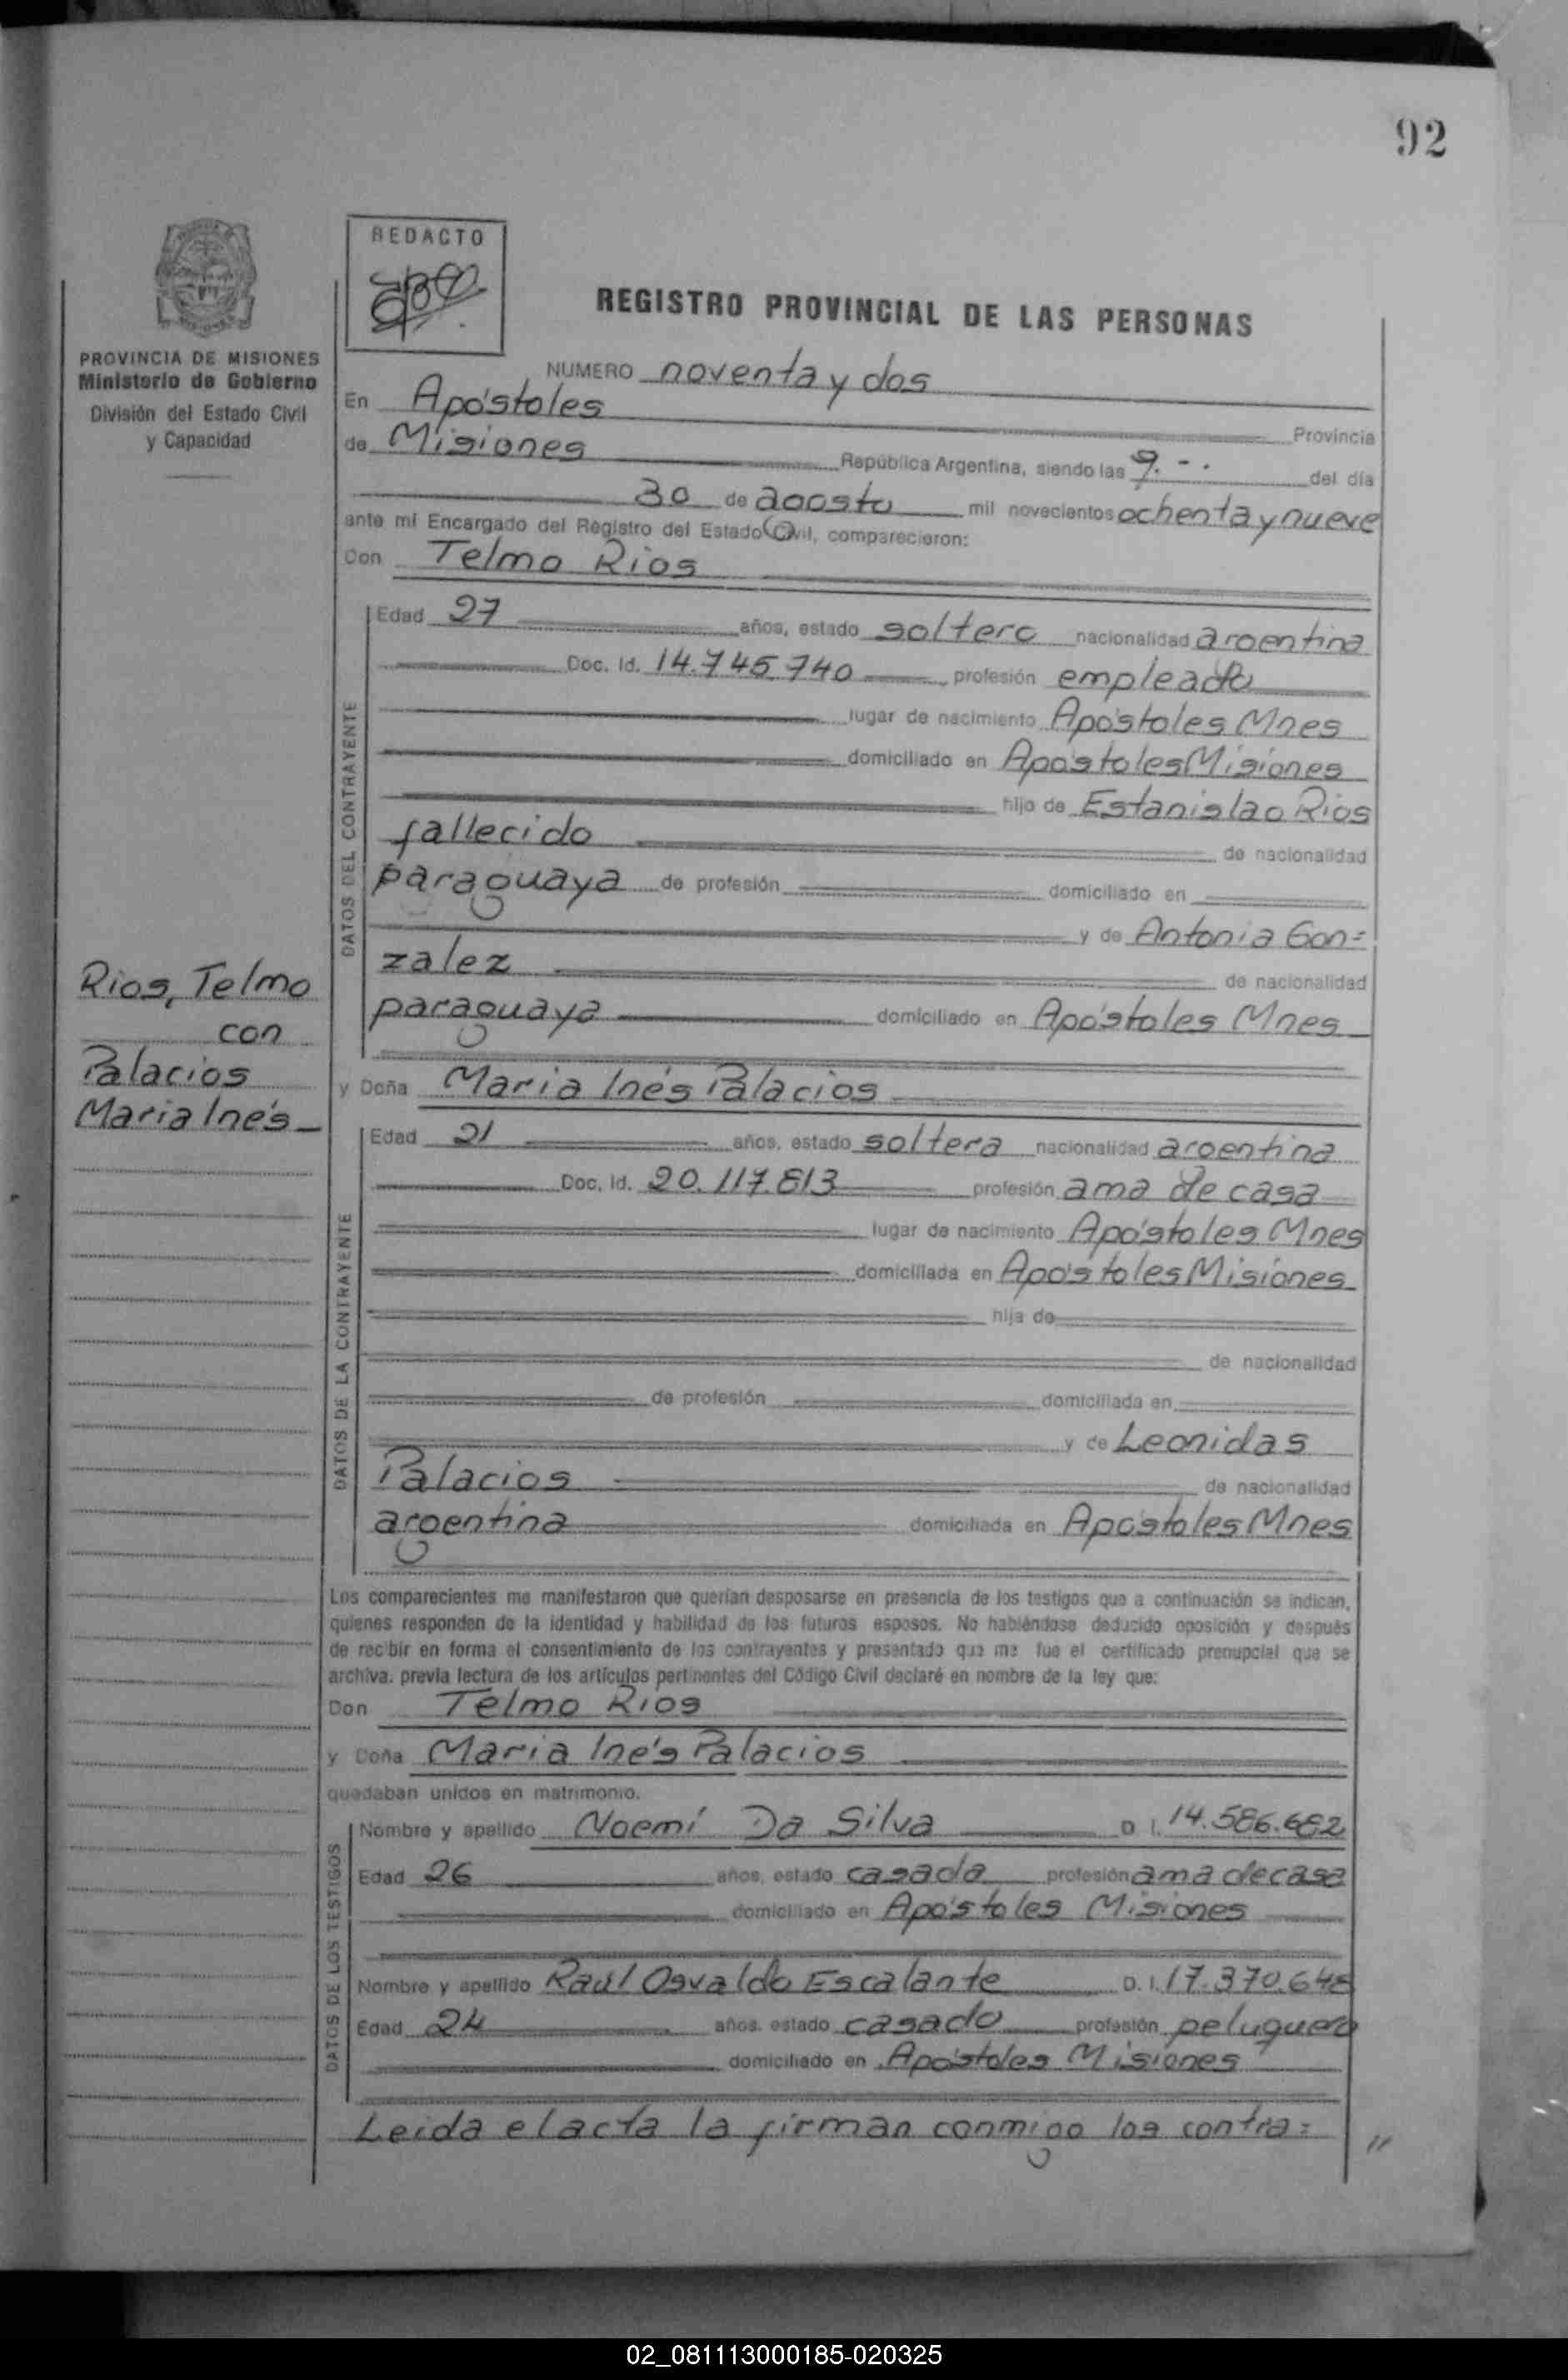 92
REDACTO
REGISTRO PROVINCIAL DE LAS PERSONAS
PROVINCIA DE MISIONES
Ministerio de Gobierno
División del Estado Civil
y Capacidad
NUMERO noventa y dos
En Apóstoles Provincia
de Misiones República Argentina, siendo las 9.-. del día
30 de agosto mil novecientos ochenta y nueve
ante mí Encargado del Registro del Estado Civil, comparecieron:
Don Telmo Rios
DATOS DEL CONTRAYENTE
Edad 27 años, estado soltero nacionalidad argentina
Doc. Id. 14.745.740 profesión empleado
lugar de nacimiento Apóstoles Mnes
domiciliado en Apóstoles Misiones
hijo de Estanislao Rios
fallecido de nacionalidad
paraguaya de profesión domiciliado en
y de Antonia Gon=
zalez de nacionalidad
paraguaya domiciliado en Apóstoles Mnes
Rios, Telmo
con
Palacios
Maria Inés
y Doña Maria Inés Palacios
DATOS DE LA CONTRAYENTE
Edad 21 años, estado soltera nacionalidad argentina
Doc. Id. 20.117.813 profesión ama de casa
lugar de nacimiento Apóstoles Mnes
domiciliada en Apóstoles Misiones
hija de
de nacionalidad
de profesión domiciliada en
y de Leonidas
Palacios de nacionalidad
argentina domiciliada en Apóstoles Mnes
Los comparecientes me manifestaron que querían desposarse en presencia de los testigos que a continuación se indican,
quienes responden de la identidad y habilidad de los futuros esposos. No habiéndose deducido oposición y después
de recibir en forma el consentimiento de los contrayentes y presentado que me fue el certificado prenupcial que se
archiva. previa lectura de los artículos pertinentes del Código Civil declaré en nombre de la ley que:
Don Telmo Rios
y Doña Maria Inés Palacios
quedaban unidos en matrimonio.
DATOS DE LOS TESTIGOS
Nombre y apellido Noemí Da Silva D. I. 14.586.682
Edad 26 años, estado casada profesión ama de casa
domiciliado en Apóstoles Misiones
Nombre y apellido Raúl Osvaldo Escalante D. I. 17.370.648
Edad 24 años. estado casado profesión peluquero
domiciliado en Apóstoles Misiones
Leida el acta la firman conmigo los contra= //
02_081113000185-020325